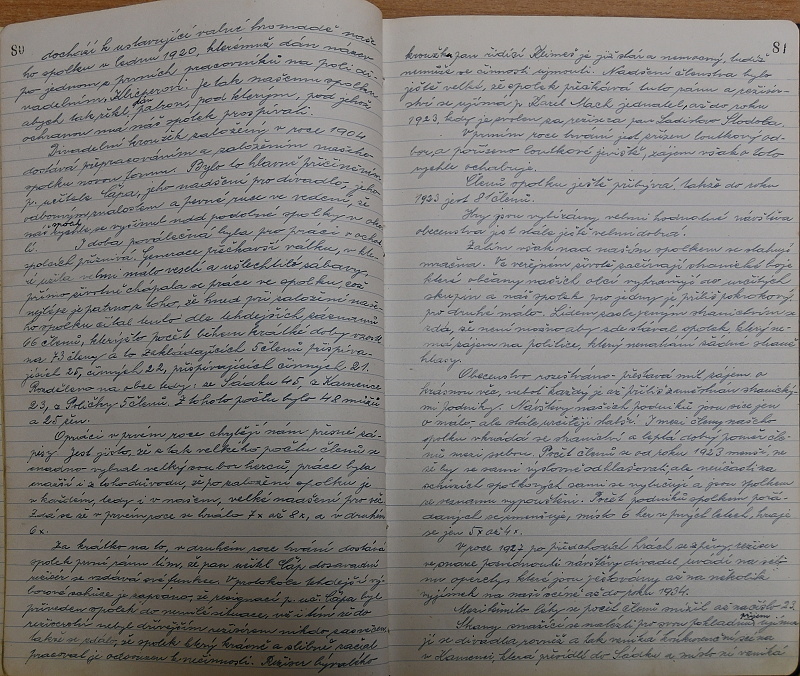 80
dochází k ustavující valné hromadě naše-
ho spolku v lednu 1920, kterému dán název
po jednom z prvních pracovníků na poli di-
vadelním, Klicperovi. Je tak našemu spolku,
abych tak řekl, dán patron, pod kterým, pod jehož
ochranou má náš spolek prospívati.
Divadelní kroužek založený v roce 1904
dodává přepracováním a založením našeho
spolku novou formu. Bylo to hlavní přičiněním
p. učitele Čápa, jeho nadšení pro divadlo, jeho
odborným znalostem a pevné ruce ve vedení, že
náš spolek se vyšinul nad podobné spolky v oko-
lí. I doba poválečná byla pro práci v ochot.
spolcích příznivá. Generace, přečkavší válku, v kte-
ré užila velmi málo veselí a ušlechtilé zábavy,
přímo živelně chápala se práce ve spolku, což
nejlépe je patrno z toho, že hned při založení naše-
ho spolku čítal tento dle tehdejších záznamů
66 členů, kterýžto počet během krátké doby vzrostl
na 73 členy a to zakládajících 5 členů přispíva-
jících 25, činných 22, přispívajících činných 21.
Rozděleno na obce tedy: ze Sádku 45, z Kamence
23, z Poličky 5 členů. Z tohoto počtu bylo 48 mužů
a 25 žen.
O práci v prvém roce chybějí nám přesné zá-
pisy. Jest jisto, že z tak velkého počtu členů se
snadno vybral velký soubor herců, práce byla
snazší i z toho důvodu, že po založení spolku je
v každém, tedy i v našem, velké nadšení pro věc.
Zdá se že v prvém roce se hrálo 7x až 8x, a v druhém
6x.
Za krátko na to, v druhém roce trvání dostává
spolek první ránu tím, že pan učitel Čáp dosavadní
režisér se vzdává své funkce. V protokole tehdejší vý-
borové schůze je zapsáno, že resignací p. uč. Čápa byl
přiveden spolek do nemilé situace, už i tím že do
režisérství nebyl dřívějším režisérem nikdo zasvěcen,
takže se zdálo, že spolek který krásně a slibně začal
pracovat je odsouzen k nečinnosti. Režisér bývalého
81
kroužku pan řídící Kleimeš je již stár a nemocný, tudíž
nemůže se činnosti ujmouti. Nadšení členstva bylo
ještě velké, že spolek překonává tuto ránu a režisér-
ství se ujímá p. Karel Mach jednatel, až do roku
1923, kdy je zvolen za režiséra pan Ladislav Skodola.
V prvním roce trvání jest zřízen loutkový od-
bor, a pořízeno loutkové jeviště, zájem však o toto
rychle ochabuje.
Členů spolku ještě přibývá, takže do roku
1923 jest 81 členů.
Hry jsou vybírány velmi hodnotné návštěva
obecenstva jest stále ještě velmi dobrá.
Zatím však nad naším spolkem se stahují
mračna. Ve veřejném životě začínají stranické boje
které občany našich obcí vyhraňují do určitých
skupin a náš spolek pro jedny je příliš pokrokový
pro druhé málo. Lidem zaslepeným stranictvím se
zdá, že není možno aby zde stával spolek, který ne-
má zájem na politice, který nenahání žádné straně
hlasy.
Obecenstvo rozeštváno přestává mít zájem o
krásnou věc, neboť každý je až příliš zaměstnán stranický-
mi podniky. Návštěvy našich podniků jsou sice jen
o málo, ale stále ucítěji slabší. I mezi členy našeho
spolku vkrádá se stranictví a leptá dobrý poměr čle-
nů mezi sebou. Počet členů se od roku 1923 menší, ne
že by se sami výslovně odhlašovali, ale neúčastí na
schůzích spolkových sami se vylučují a jsou spolkem
ze seznamu vypouštěni. Počet podniků spolkem pořá-
daných se zmenšuje, místo 6 her v prvých letech, hraje
se jen 5x až 4x.
V roce 1927 po předchozích hrách se zpěvy, režisér
se, snaze pozvednouti návštěvy divadel, uvádí na scé-
nu operety, které jsou pěstovány až na několik
výjimek na naší scéně až do roku 1934.
Mezi těmito léty se počet členů snížil až na číslo 22.
Strany snažící se nalézti pro svou pokladnu příjem ujíma-
jí se divadla, rovněž a tak vzniká konkurenční scéna
v Kamenci, která přesídlí do Sádku a místo ní vzniká